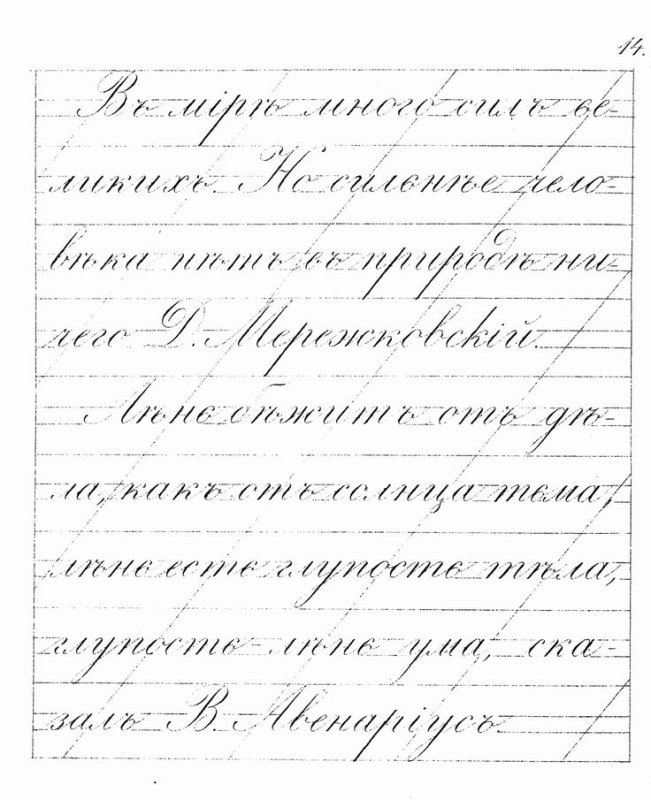 14.
Въ мірѣ много силъ ве-
ликихъ. Но сильнѣе чело-
вѣка нѣтъ въ природѣ ни-
чего Д. Мережковскій.
Лѣнь бѣжитъ отъ дѣ-
ла, какъ отъ солнца тьма,
лѣнь есть глупость тѣла,
глупость-лѣнь ума, ска-
залъ В. Авенаріусъ.